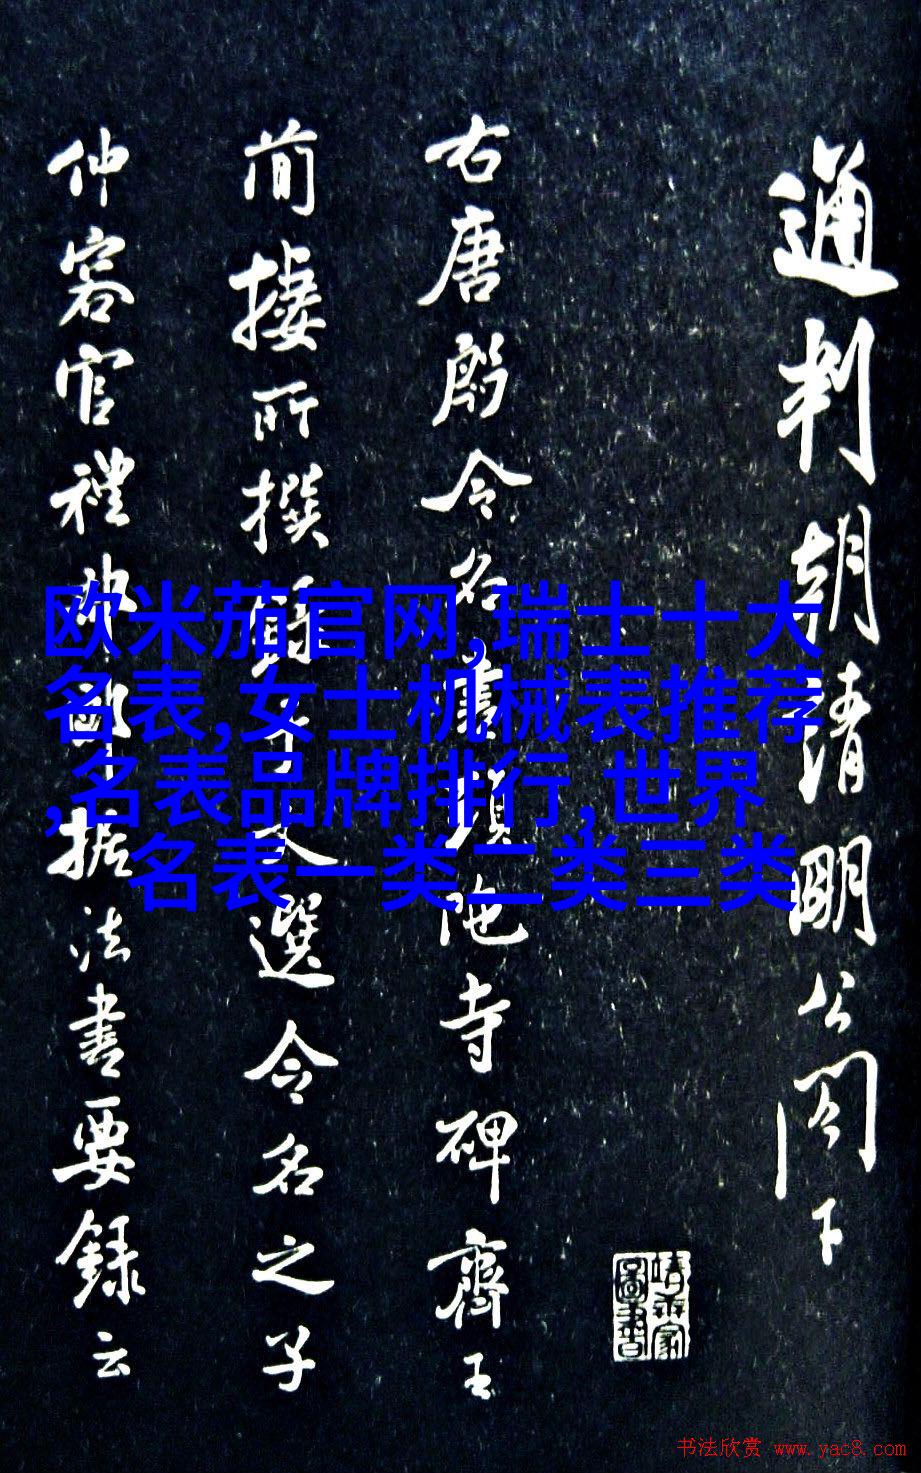 通判胡清明公閣下
右唐殷令名書頭陁寺碑齊王
簡棲所撰
選令名之子
仲容官禮部
據法書要録云
欧米茄官网,瑞士十大
名表,女士机械表推荐
,名表品牌排行,世界
名表一类二类三类
书法欣赏 www.yac8.com